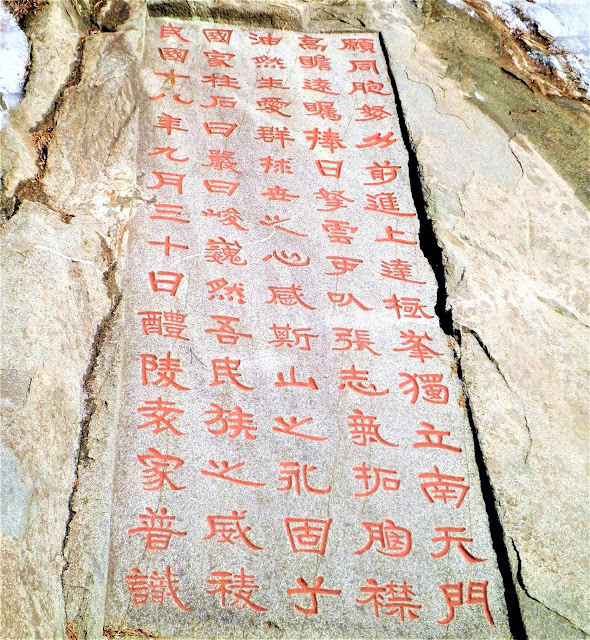 願同胞努力前進上達極峯獨立南天門
高瞻遠矚捧日拏雲可以張志氣拓胸襟
油然生愛群救世之心感斯山之永固兮
國家柱石曰嚴曰峻巍然吾民族之威稜
民國十八年九月三十日醴陵袁家普識